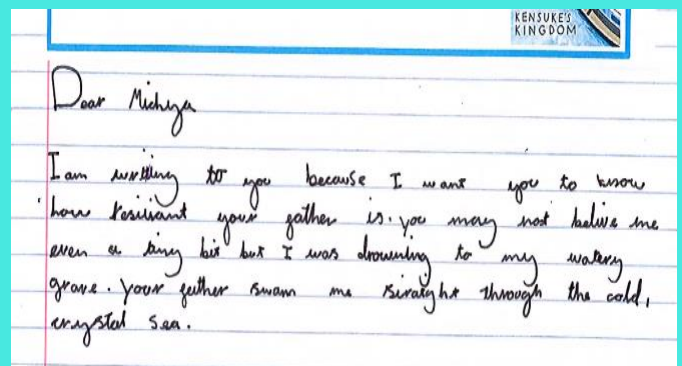 KENSUKE'S
KINGDOM
Dear Michiya
I am writting to you because I want you to know
how resiliant your father is. you may not belive me
even a tiny bit but I was drowning to my watery
grave. your father swam me straight through the cold,
crystal sea.